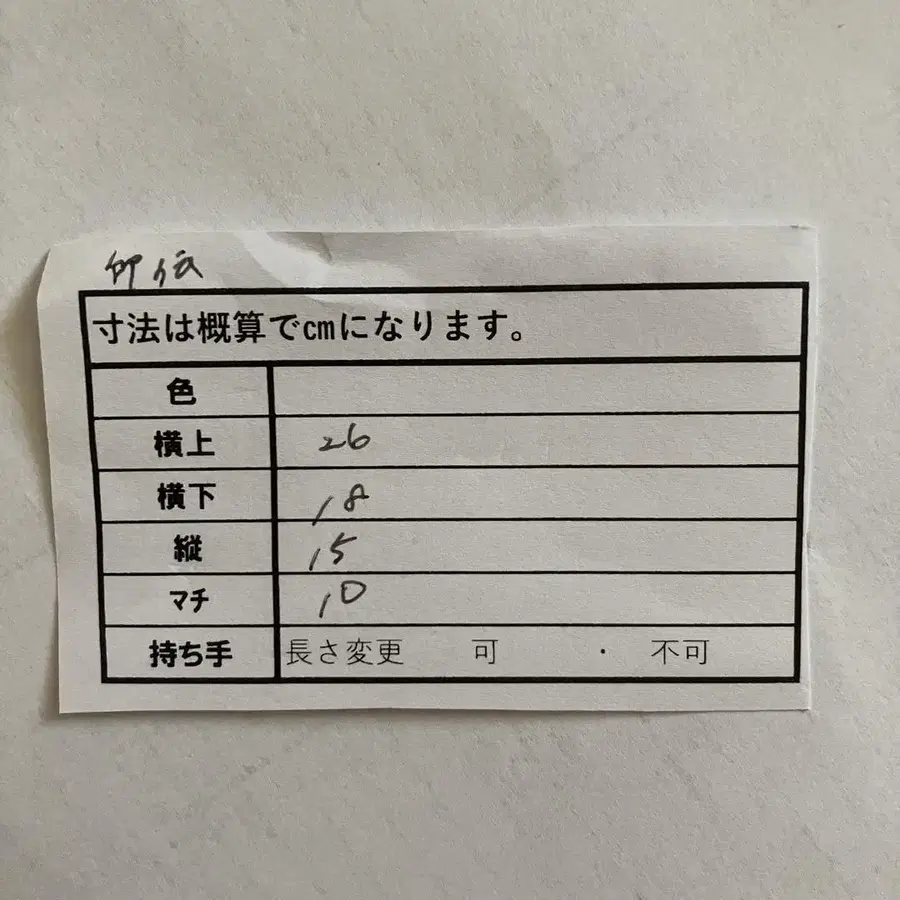 印伝
寸法は概算で㎝になります。
色
横上 26
横下 18
縦 15
マチ 10
持ち手 長さ変更 可 ・ 不可